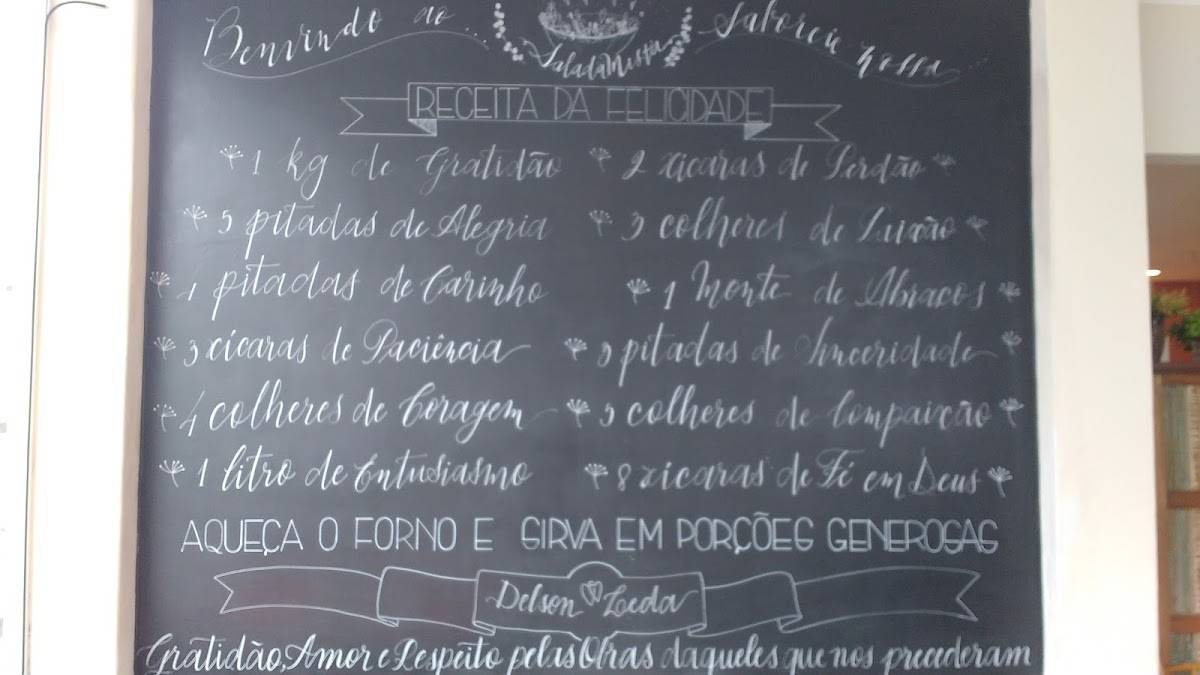 Benvindo ao ...
Salada Mista
Saboreie nossa ...
RECEITA DA FELICIDADE
1 kg de Gratidão
2 xícaras de Perdão
5 pitadas de Alegria
3 colheres de
4 pitadas de Carinho
1 Monte de Abraços
3 xícaras de Paciência
3 pitadas de Sinceridade
4 colheres de Coragem
3 colheres de Compaixão
1 litro de Entusiasmo
8 xícaras de Fé em Deus
AQUEÇA O FORNO E SIRVA EM PORÇÕES GENEROSAS
Delson Leda
Gratidão, Amor e Respeito pelas Obras daqueles que nos precederam